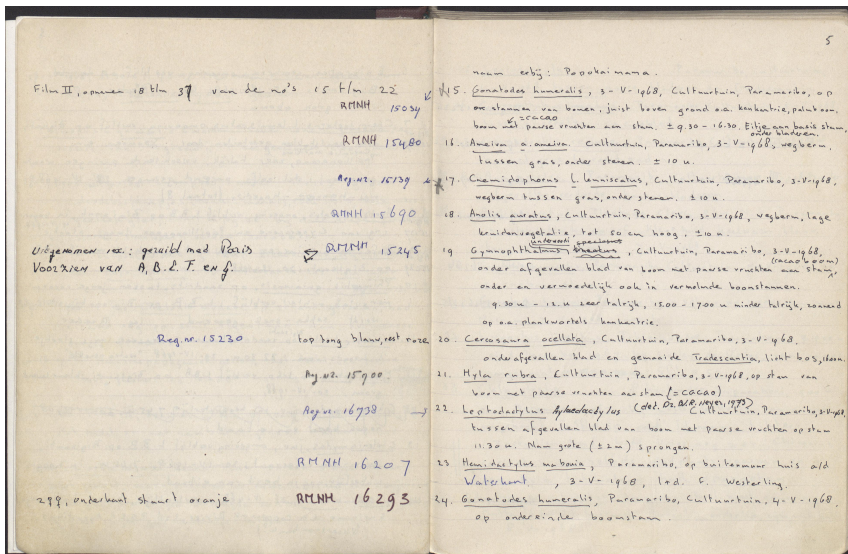 Film II, opnamen 18 t/m 37 van de no's 15 t/m 22
RMNH 15034
RMNH 15480
Reg.nr. 15139
RMNH 15690
uitgenomen 1 ex.: geruild med Paris
RMNH 15245
Voorzien van A, B, E, F. en G.
Reg.nr. 15230
top tong blauw, rest roze
Reg.nr. 15900
Reg.nr. 16738
RMNH 16207
2 ♀♀, onderkant staart oranje
RMNH 16293
5
naam erbij: Popokaimama.
15. Gonatodes humeralis, 3-V-1968, Cultuurtuin, Paramaribo, op
stammen van bomen, juist boven grond o.a. kankantrie, palmboom,
=cacao
boom met paarse vruchten aan stam. ± 9.30 - 16.30. Eitje aan basis stam,
onder bladeren.
16. Ameiva a. ameiva. Cultuurtuin, Paramaribo, 3-V-1968, wegberm,
tussen gras, onder stenen. ± 10 u.
17. Cnemidophorus l. lemniscatus, Cultuurtuin, Paramaribo, 3-V-1968,
wegberm tussen gras, onder stenen. ± 10 u.
18. Anolis auratus, Cultuurtuin, Paramaribo, 3-V-1968, wegberm, lage
kruidenvegetatie, tot 50 cm hoog, ± 10 u.
underwoodi speciosus
19 Gymnophthalmus, Cultuurtuin, Paramaribo, 3-V-1968,
(cacaoboom)
onder afgevallen blad van boom met paarse vruchten aan stam,
onder en vermoedelijk ook in vermolmde boomstammen.
9.30 u - 12. u zeer talrijk, 15.00 - 17.00 u minder talrijk, zonnend
op o.a. plankwortels kankantrie.
20. Cercosaura ocellata, Cultuurtuin, Paramaribo, 3-V-1968,
onder afgevallen blad en gemaaide Tradescantia, licht bos,
21. Hyla rubra, Cultuurtuin, Paramaribo, 3-V-1968, op stam van
boom met paarse vruchten aan stam (=cacao)
22. Leptodactylus (det. Dr. W.R. Heyer, 1973) Cultuurtuin, Paramaribo, 3-V-1968,
tussen afgevallen blad van boom met paarse vruchten op stam
11.30 u. Nam grote (± 2 m) sprongen.
23 Hemidactylus mabouia, Paramaribo, op buitenmuur huis a/d
Waterkant, 3-V-1968, l+d. F. Westerling.
24. Gonatodes humeralis, Paramaribo, Cultuurtuin, 4-V-1968,
op ondereinde boomstam.